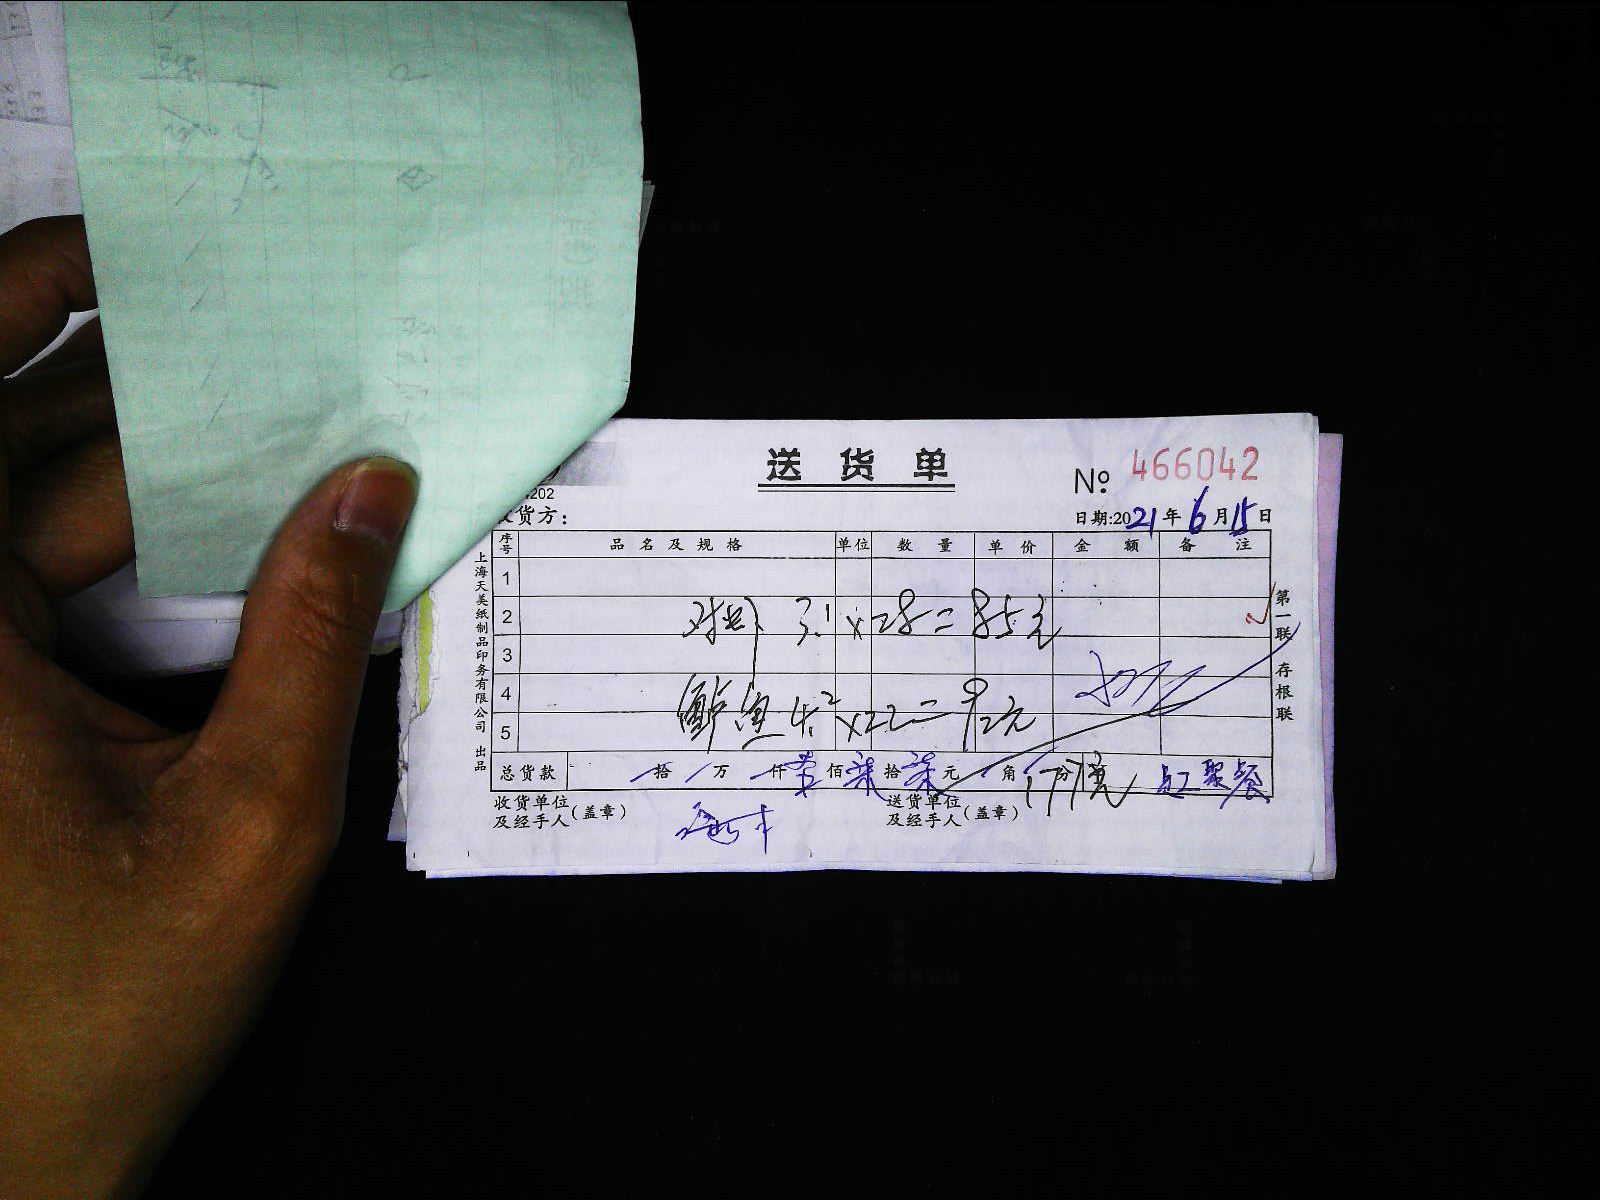 送货单
No 466042
202
货方：
日期:2021年6月15日
序号 品名及规格 单位 数量 单价 金额 备注
1
2 对虾 3.1 x 28 = 85元
3
4 鲈鱼 4.2 x 22 = 92元
5
总货款 拾 万 仟 壹佰柒拾柒元 角 分 177元
收货单位及经手人（盖章）
送货单位及经手人（盖章）
上海天美纸制品印务有限公司 出品
第一联 存根联